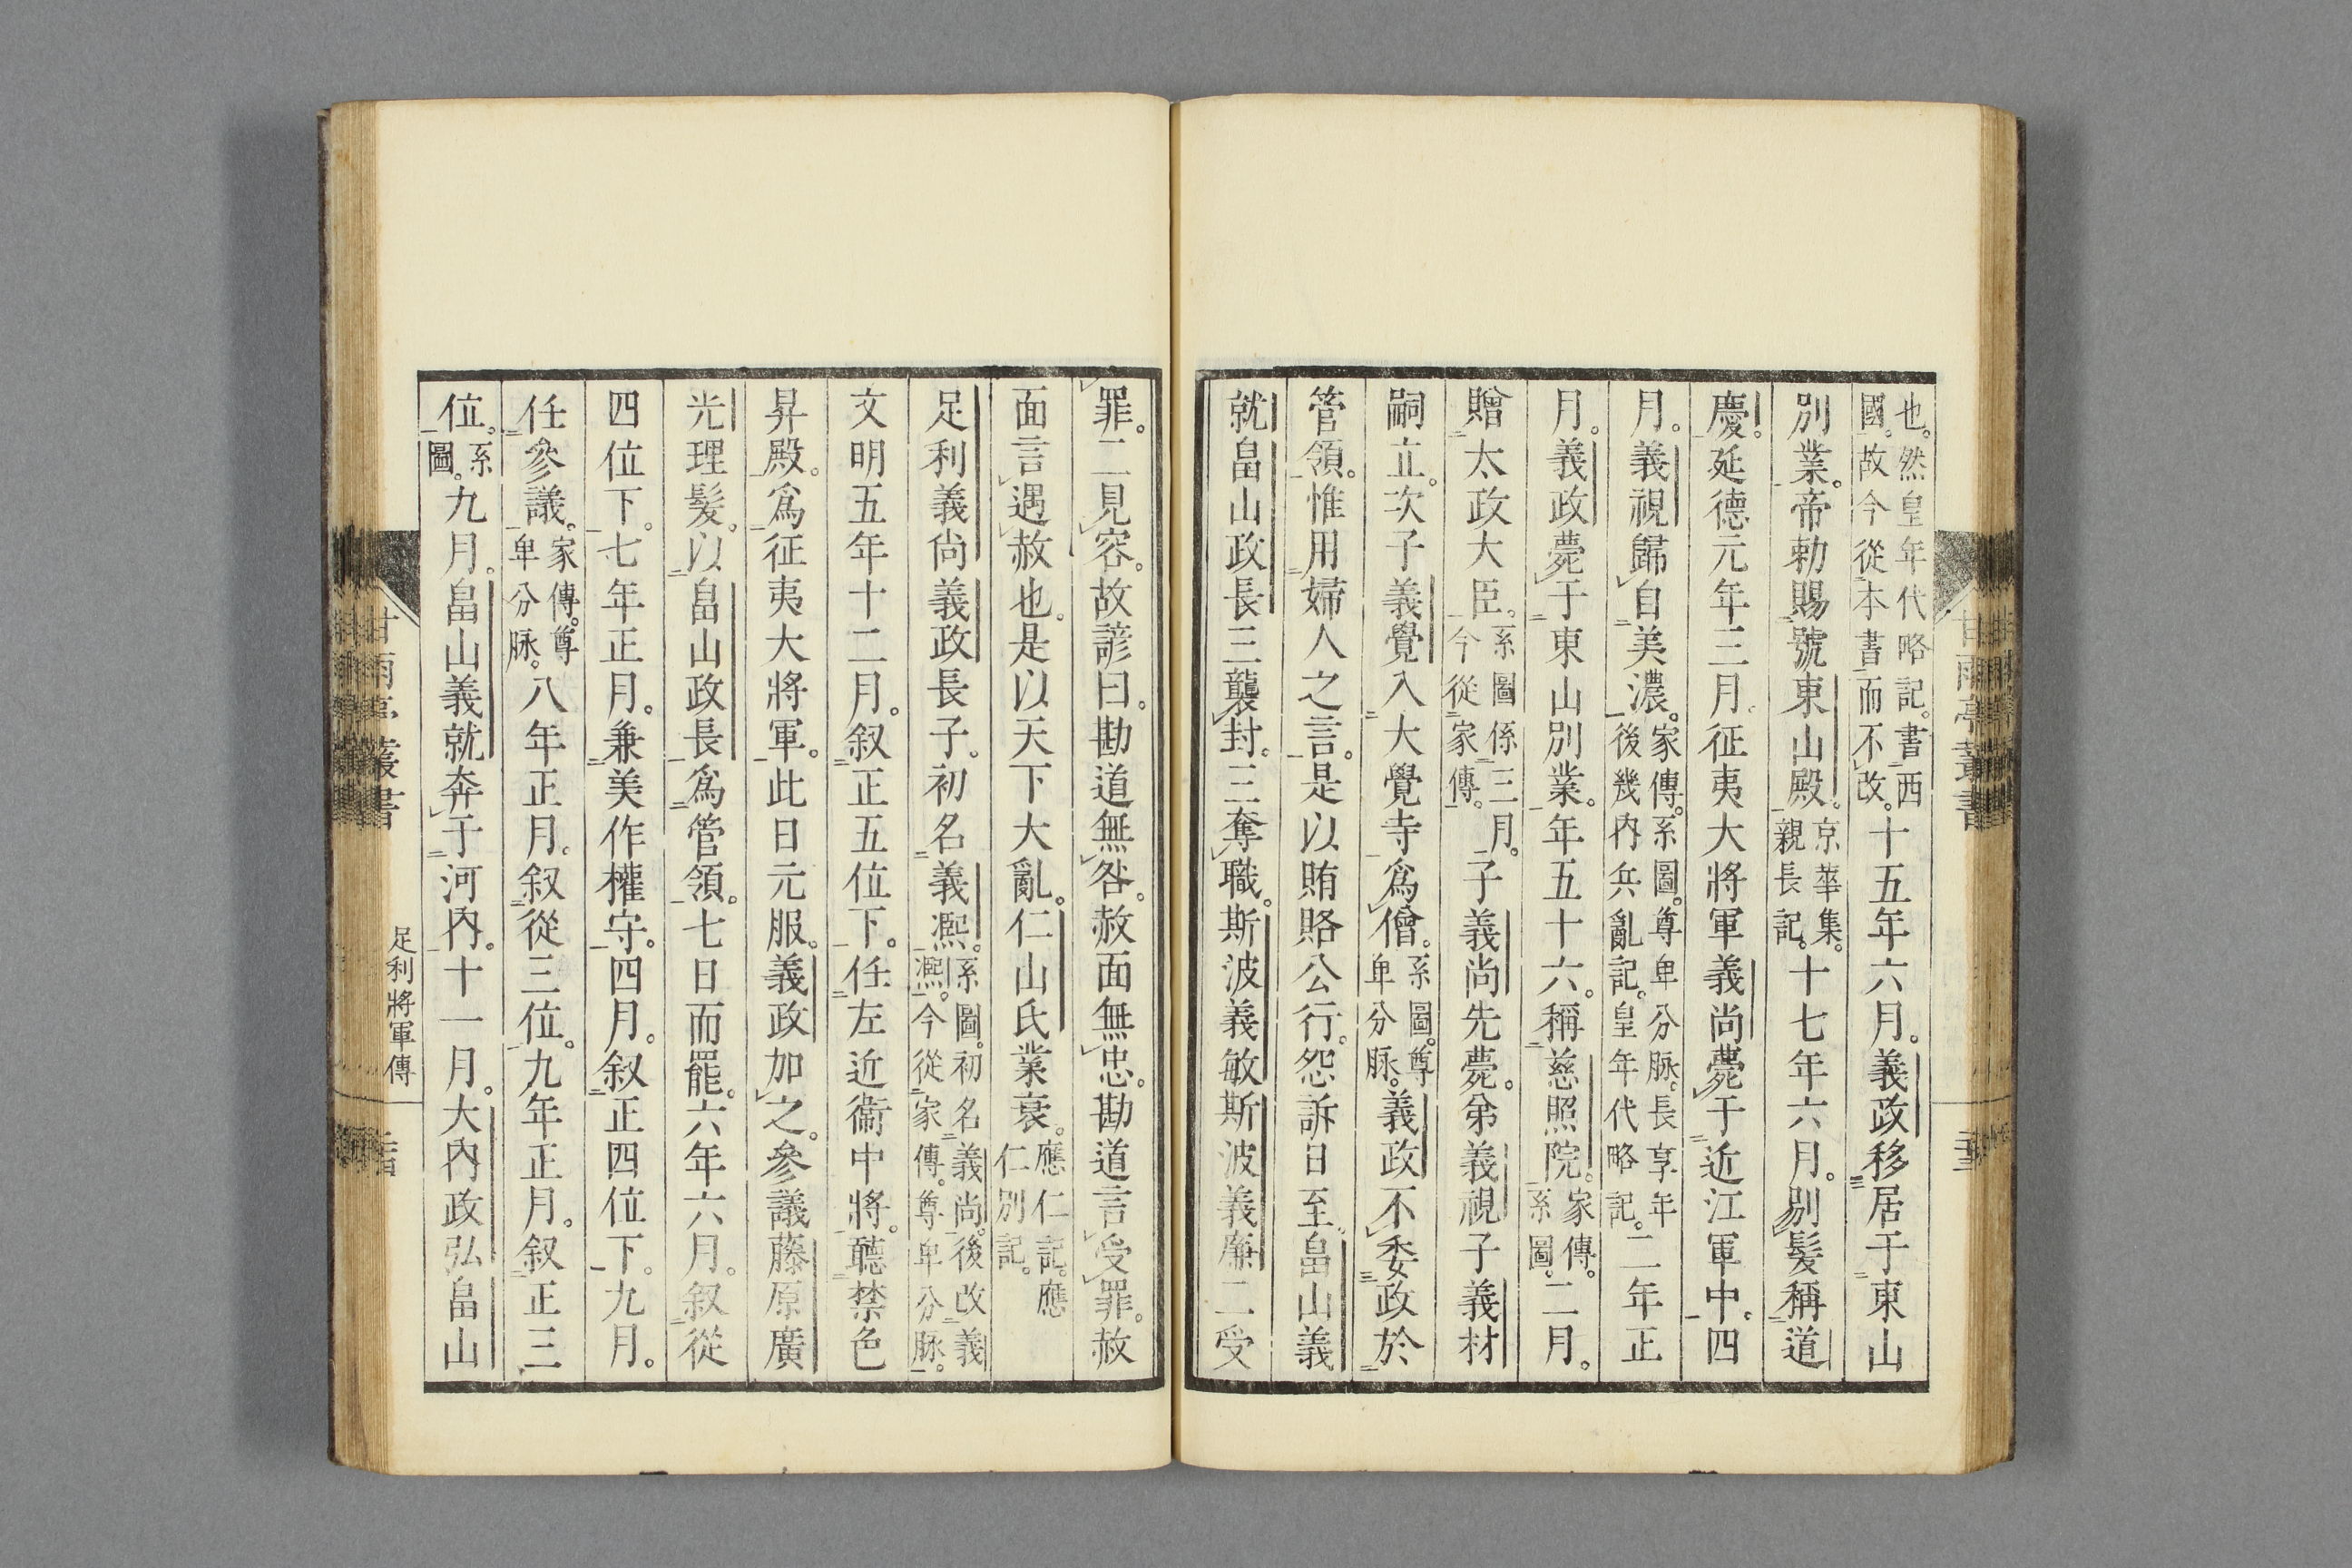 也。然皇年代略記。書西國。故今從本書而不改。十五年六月。義政移居于東山
別業。帝勅賜號東山殿。京華集。親長記。十七年六月。剔髮稱道
慶。延德元年三月。征夷大將軍義尚薨于近江軍中。四
月。義視歸自美濃。家傳。系圖。尊卑分脉。長享年後幾內兵亂記。皇年代略記。二年正
月。義政薨于東山別業。年五十六。稱慈照院。家傳。系圖。二月。
贈太政大臣。系圖係三月。今從家傳。子義尚先薨。弟義視子義材
嗣立。次子義覺入大覺寺爲僧。系圖。尊卑分脉。義政不委政於
管領。惟用婦人之言。是以賄賂公行。怨訴日至。畠山義
就畠山政長三襲封。三奪職。斯波義敏斯波義廉二受
罪。二見容。故諺曰。勘道無咎。赦面無忠。勘道言受罪。赦
面言遇赦也。是以天下大亂。仁山氏業衰。應仁記。應仁別記。
足利義尚義政長子。初名義熈。系圖。初名義尚。後改義熈。今從家傳。尊卑分脉。
文明五年十二月。叙正五位下。任左近衞中將。聽禁色
昇殿。爲征夷大將軍。此日元服。義政加之。參議藤原廣
光理髮。以畠山政長爲管領。七日而罷。六年六月。叙從
四位下。七年正月。兼美作權守。四月。叙正四位下。九月。
任參議。家傳。尊卑分脉。八年正月。叙從三位。九年正月。叙正三
位。系圖。九月。畠山義就奔于河內。十一月。大內政弘畠山
甘雨亭叢書
足利將軍傳
甘雨亭叢書